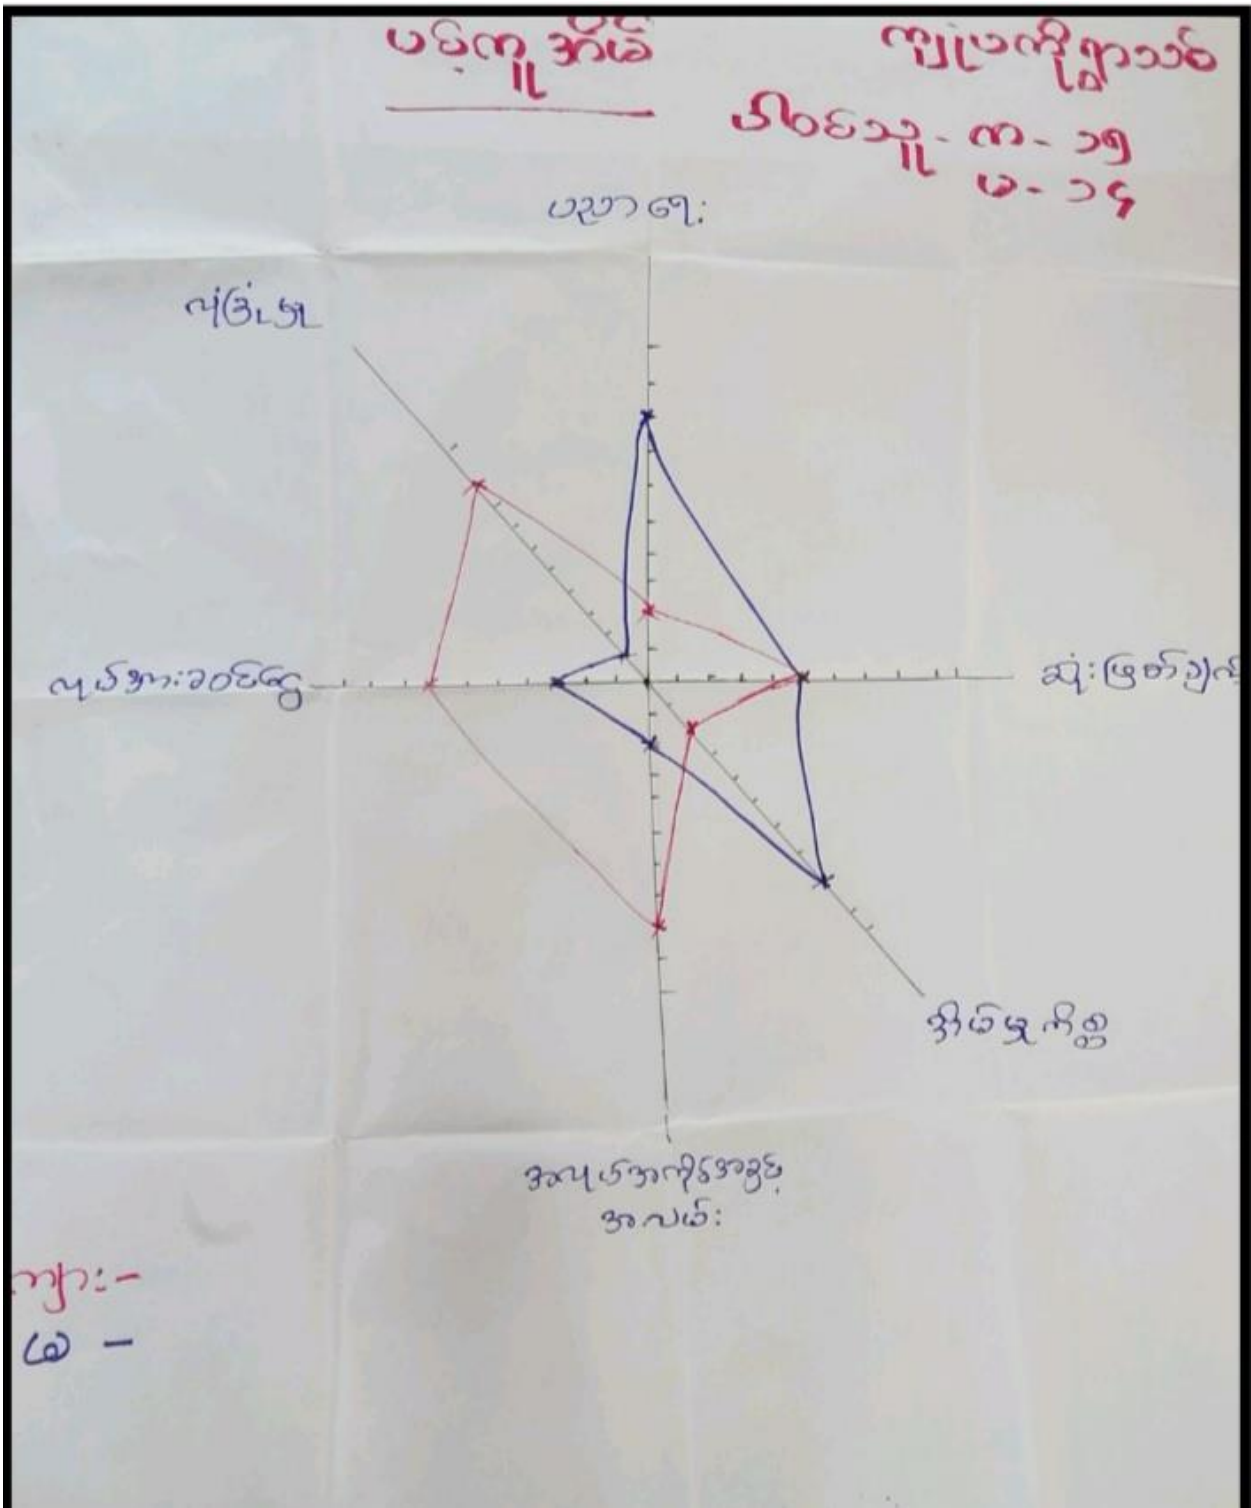 ပင့်ကူအိမ်
ကျူပြကိုရွာသစ်
ပါဝင်သူ - ကာ - ၁၅
မ - ၁၄
ပညာရေး
လုံခြုံမှု
လုပ်အားခဝင်ငွေ
ဆုံးဖြတ်ချက်
အိမ်မှုကိစ္စ
အလုပ်အကိုင်အခွင့်
အလမ်း
ကျား -
မ -